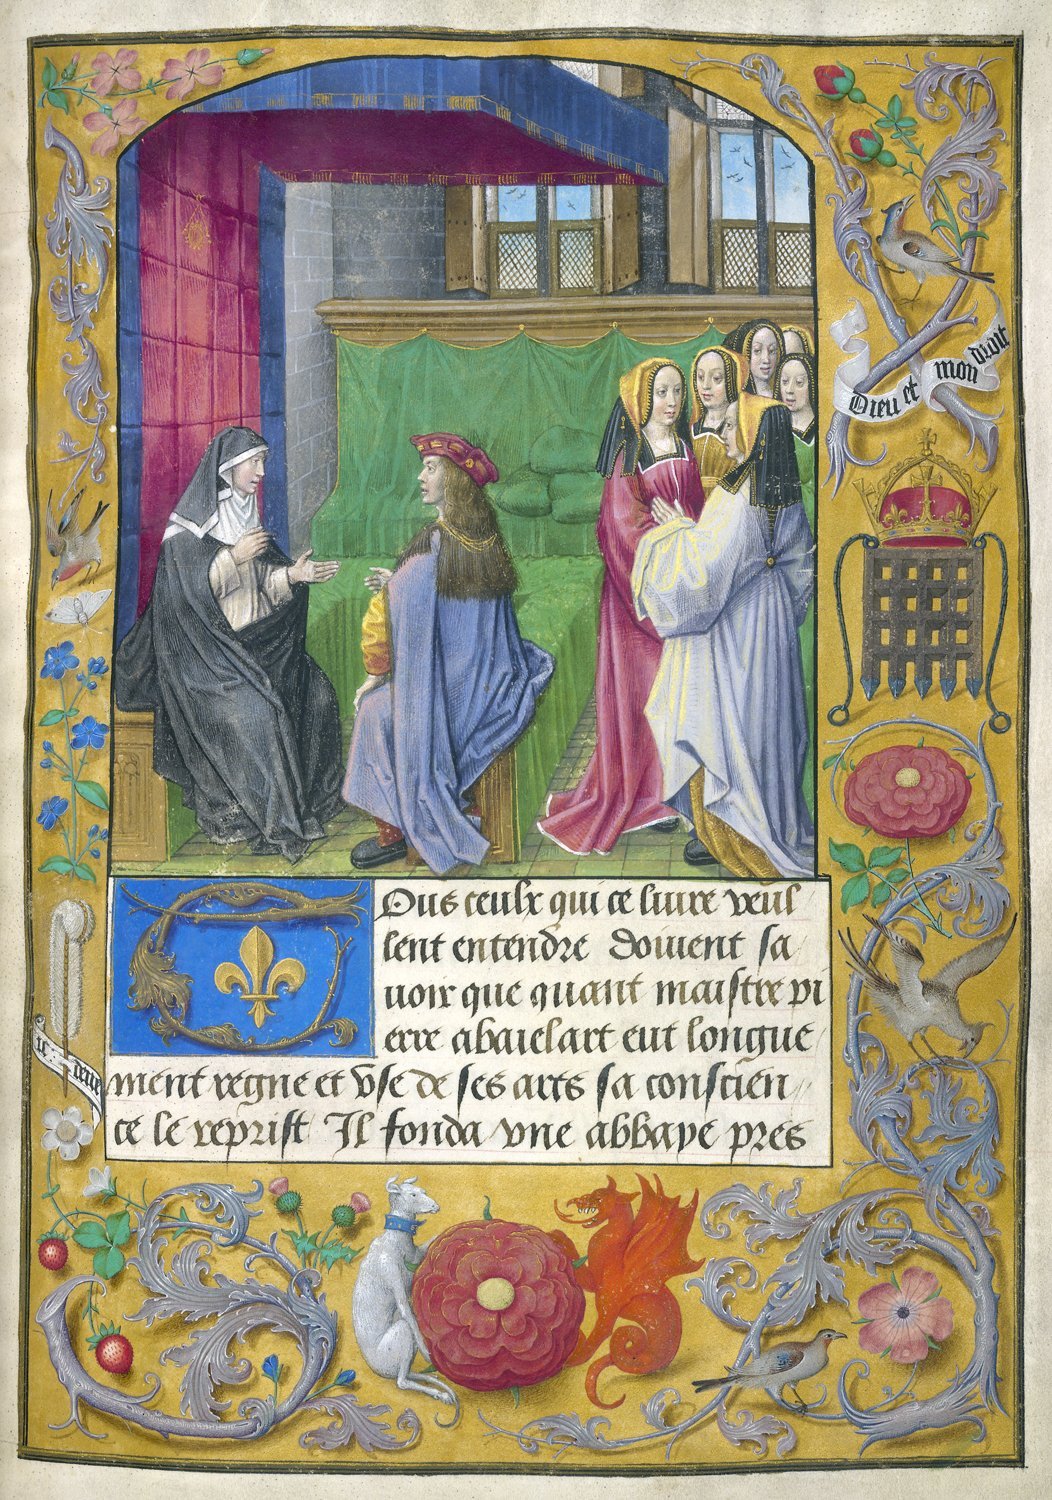 Dieu et mon droit
Ous ceulx qui ce liure veul
lent entendre doiuent sa
uoir que quant maistre pi
erre abaielart eut longue
ment regne et vse de ses arts sa conscien
ce le reprist Il fonda vne abbaye pres
ic dene